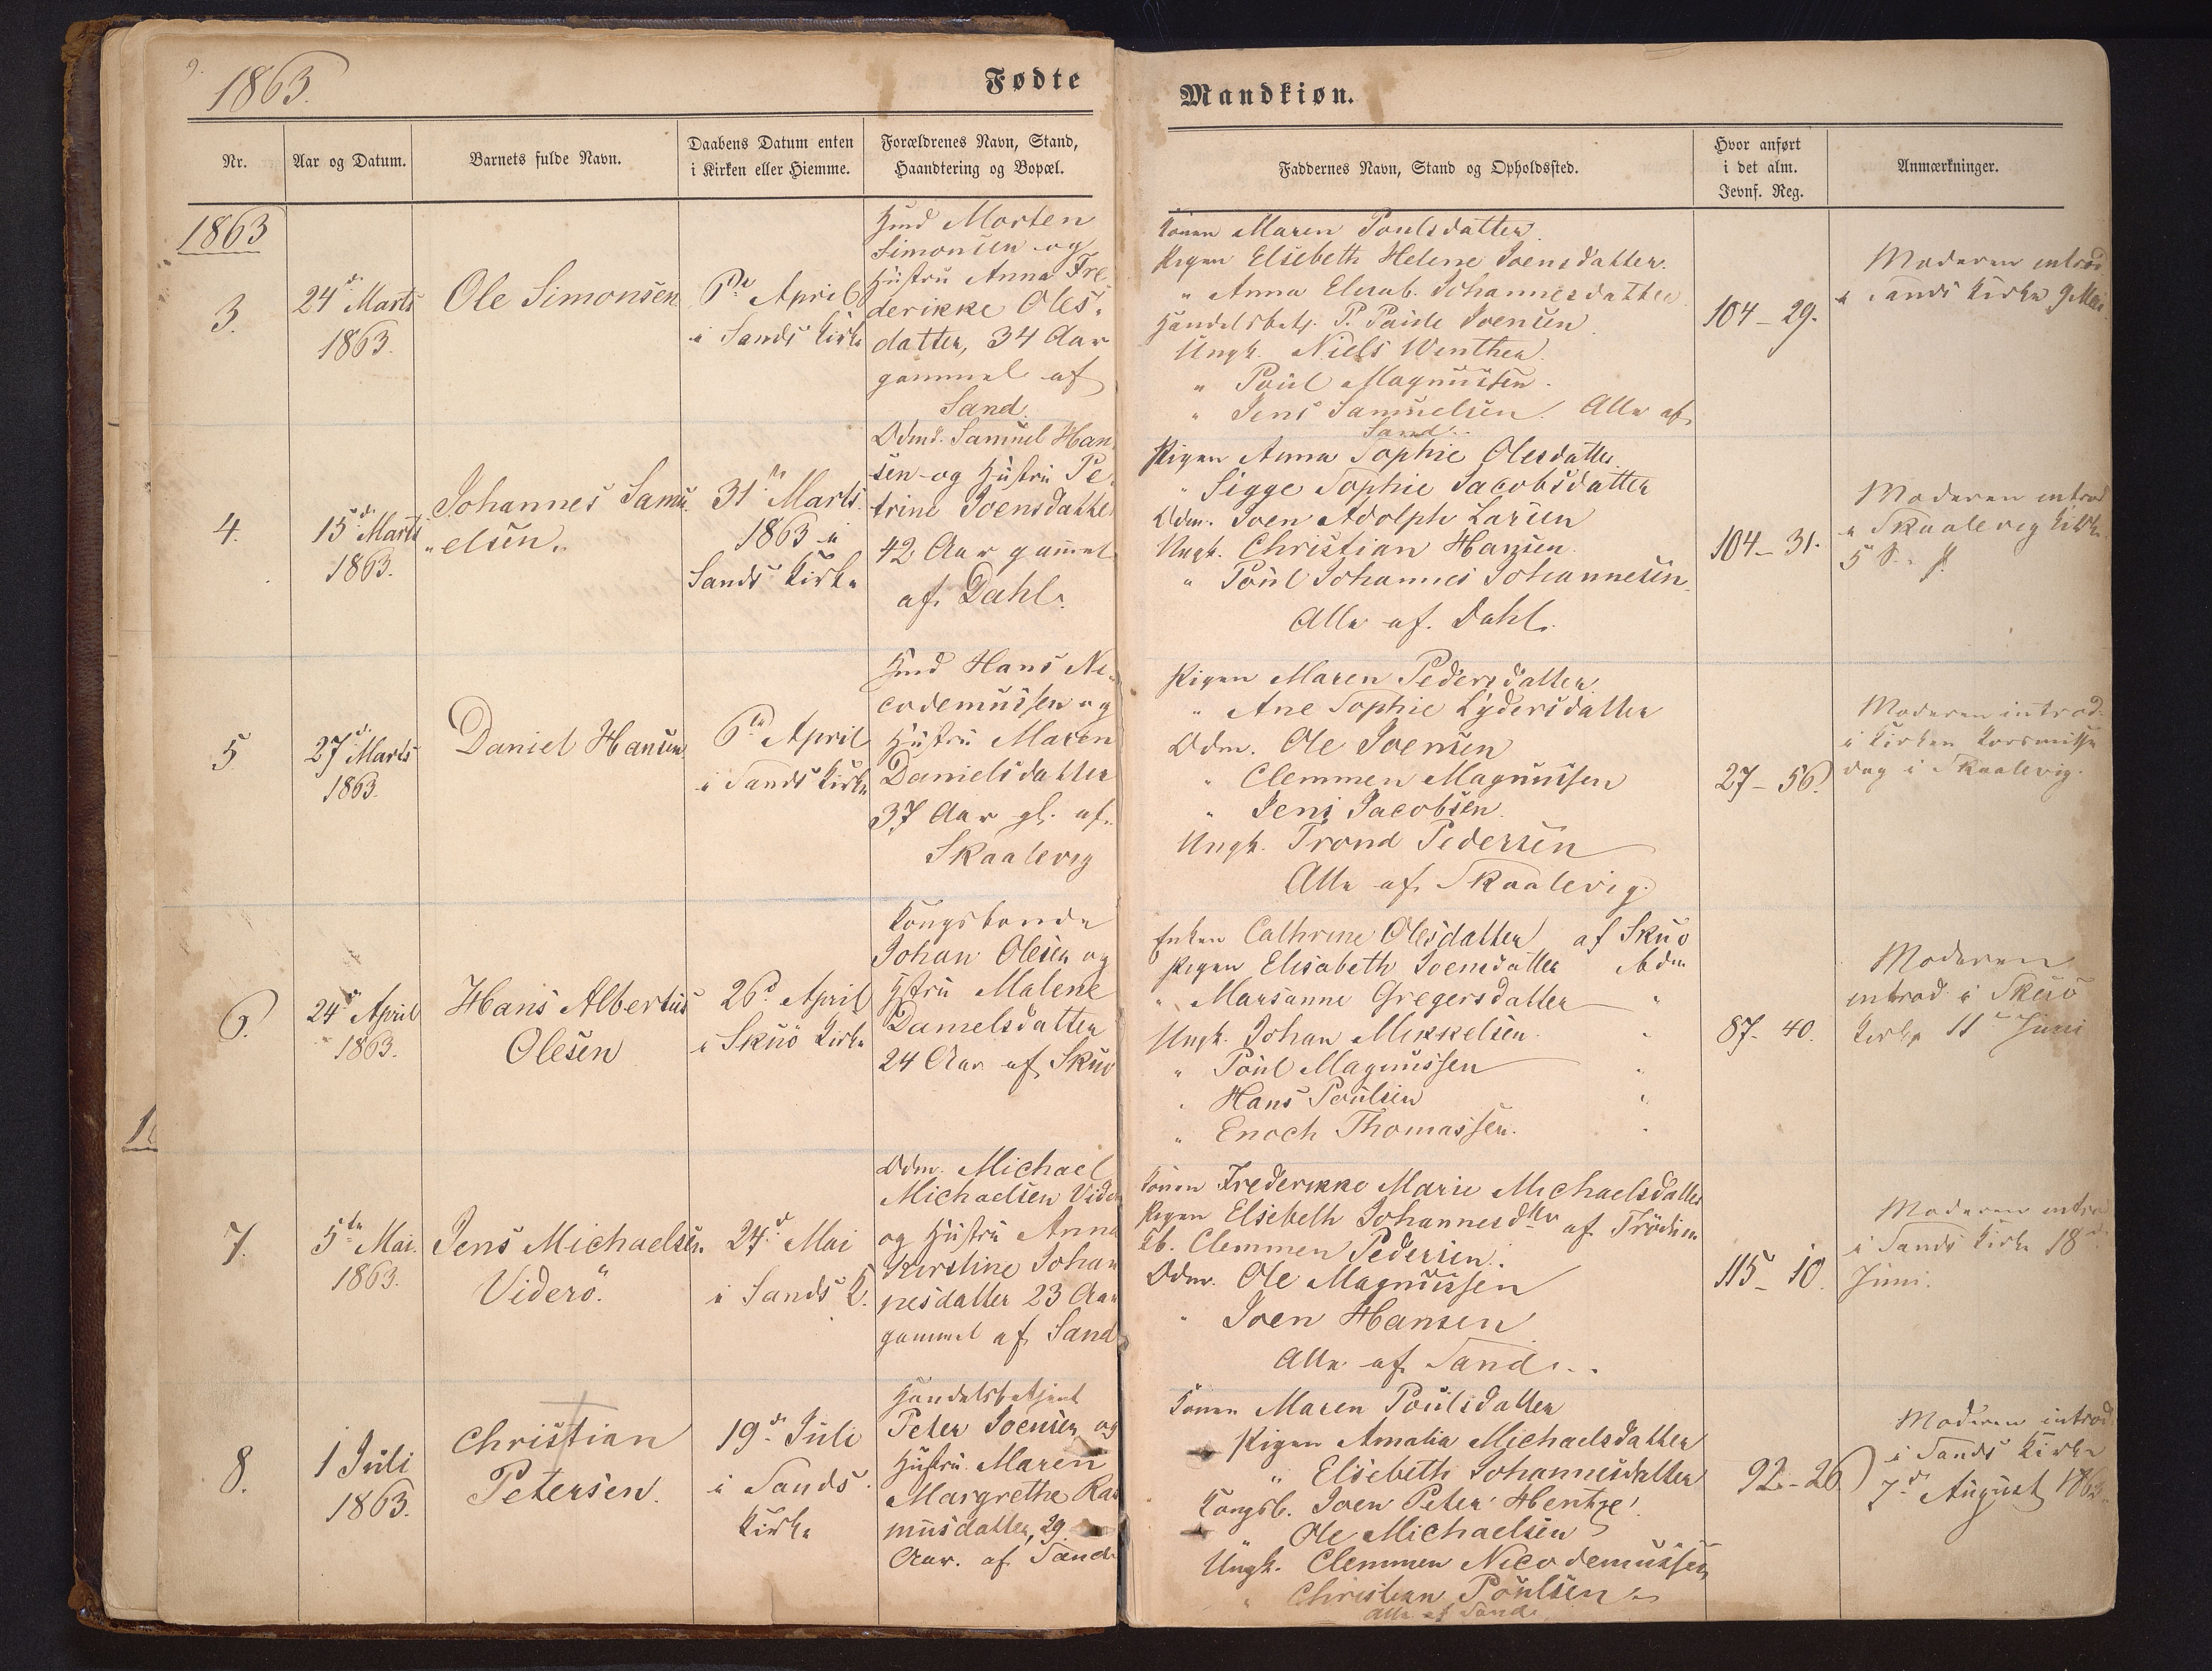 9.
1863.
Fødte
Nr.
Aar og Datum.
Barnets fulde Navn.
Daabens Datum enten
i Kirken eller Hiemme.
Forældrenes Navn, Stand,
Haandtering og Bopæl.
1863
3.
24de Marts
1863.
Ole Simonsen
6te April
i Sands Kirke
Hmd Morten
Simonsen og
Hustru Anna Fre
derikke Oles-
datter, 34 Aar
gammel af
Sand.
4.
15de Marts
1863.
Johannes Samu-
elsen.
31te Marts
1863 i
Sands Kirke
Odmd. Samuel Han
sen og Hustru Pe-
trine Joensdatter
42 Aar gammel
af Dahl.
5
27de Marts
1863.
Daniel Hansen
6te April
i Sands Kirke
Hmd Hans Ni-
codemussen og
Hustru Maren
Danielsdatter
37 Aar gl. af
Skaalevig
6.
24de April
1863.
Hans Albertus
Olesen
26de April
i Skuö Kirke
Kongsbonde
Johan Olesen og
Hstru Malene
Danielsdatter
24 Aar af Skuö
7.
5te Mai.
1863.
Jens Michaelsen
Viderö.
24de Mai
i Sands K.
Odm. Michael
Michaelsen Vide
og Hustru Anna
Kirstine Johan
nesdatter 23 Aar
gammel af Sand
8.
1 Juli
1863.
Christian
Petersen.
19de Juli
i Sands
Kirke
Handelsbetjent
Peter Joensen og
Hustru Maren
Margrethe Ras
musdatter, 29
Aar. af Sand
Mandkiøn.
Faddernes Navn, Stand og Opholdssted.
Hvor anført
i det alm.
Jevnf. Reg.
Anmærkninger.
Konen Maren Poulsdatter
Pigen Elsebeth Helene Joensdatter.
" Anna Elisab. Johannesdatter
Handelsbetj. P. Joensen
Ungk. Niels Winther.
" Poul Magnussen.
" Jens Samuelsen. Alle af
Sand.
104 - 29.
Moderen introd.
i Sands Kirke 9 Mai.
Pigen Anna Sophie Olesdatter
" Sigge Sophie Jacobsdatter
Odm. Joen Adolph Larsen
Ungk. Christian Hansen.
" Poul Johannes Johannesen.
Alle af Dahl.
104 - 31.
Moderen introd
i Skaalevig Kirke
5
Pigen Maren Pedersdatter
" Ane Sophie Lydersdatter
Odm. Ole Joensen
" Clemmen Magnussen
" Jens Jacobsen.
Ungk. Trond Pedersen
Alle af Skaalevig.
27 - 56.
Moderen introd.
i Kirken Korsmisse
dag i Skaalevig.
Enken Cathrine Olesdatter af Skuö
Pigen Elisabeth Joensdatter ibdm
" Marsanne Gregersdatter "
Ungk. Johan Mikkelsen "
" Poul Magnussen "
" Hans Poulsen "
" Enoch Thomassen. "
87 - 40.
Moderen
introd. i Skuö
Kirke 11te Juni
Konen Frederikke Marie Michaelsdatter
Pigen Elsebeth Johannesdtter af Trödum
Kb. Clemmen Pedersen.
Odm. Ole Magnussen
" Joen Hansen
Alle af Sand.
115 - 10.
Moderen introd
i Sands Kirke 18de
Juni.
Konen Maren Poulsdatter
Pigen Amalia Michaelsdatter
" Elsebeth Johannesdatter
Kongsb. Joen Peter Hentze
" Ole Michaelsen
Ungk. Clemmen Nicodemussen
" Christian Poulsen
Alle af Sand.
92 - 26
Moderen introd.
i Sands Kirke
7de August 1863.